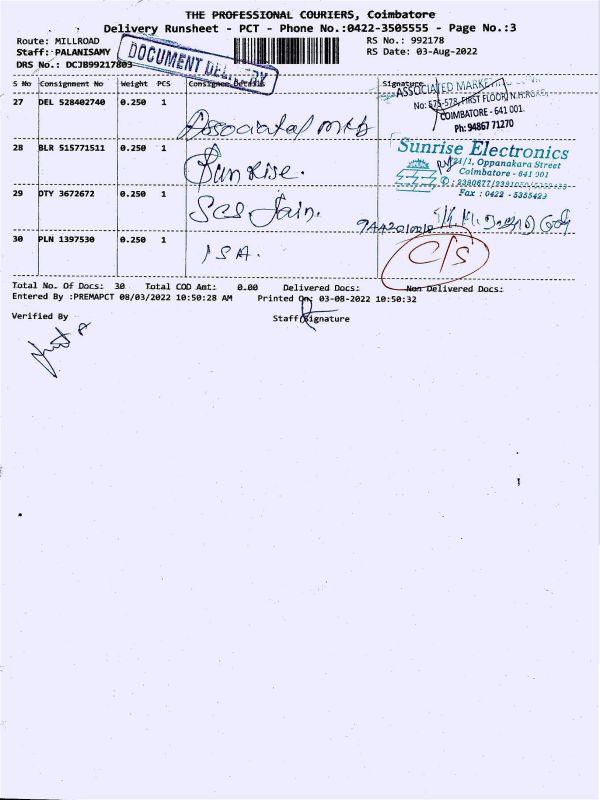 THE PROFESSIONAL COURIERS, Coimbatore
Delivery Runsheet - PCT - Phone No.:0422-3505555 - Page No.:3
Route: MILLROAD
RS No.: 992178
Staff: PALANISAMY
RS Date: 03-Aug-2022
DRS No.: DCJB99217803
DOCUMENT DELIVERY
S No Consignment No Weight PCS Consignee Details Signature
27 DEL 528402740 0.250 1
Associated
ASSOCIATED MARKETING
No: 575-578, FIRST FLOOR, N.H.ROAD,
COIMBATORE - 641 001.
Ph: 94867 71270
28 BLR 515771511 0.250 1
Sunrise.
Sunrise Electronics
Oppanakara Street
Coimbatore - 641 001
Fax : 0422 - 5355423
29 DTY 3672672 0.250 1
Jain.
30 PLN 1397530 0.250 1
ISA.
C/S
Total No. Of Docs: 30 Total COD Amt: 0.00 Delivered Docs: Non Delivered Docs:
Entered By :PREMAPCT 08/03/2022 10:50:28 AM Printed On: 03-08-2022 10:50:32
Verified By
Staff Signature